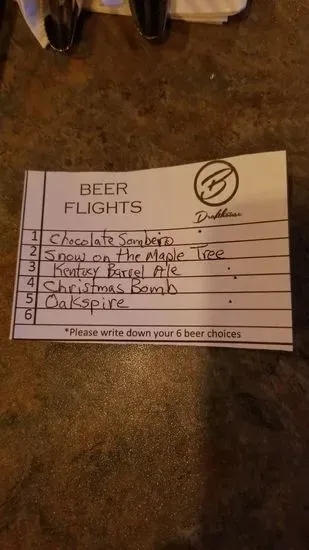 BEER
FLIGHTS
B
Drafthouse
1 Chocolate Sombero
2 Snow on the Maple Tree
3 Kentucy Barrel Ale
4 Christmas Bomb
5 Oakspire
6
*Please write down your 6 beer choices